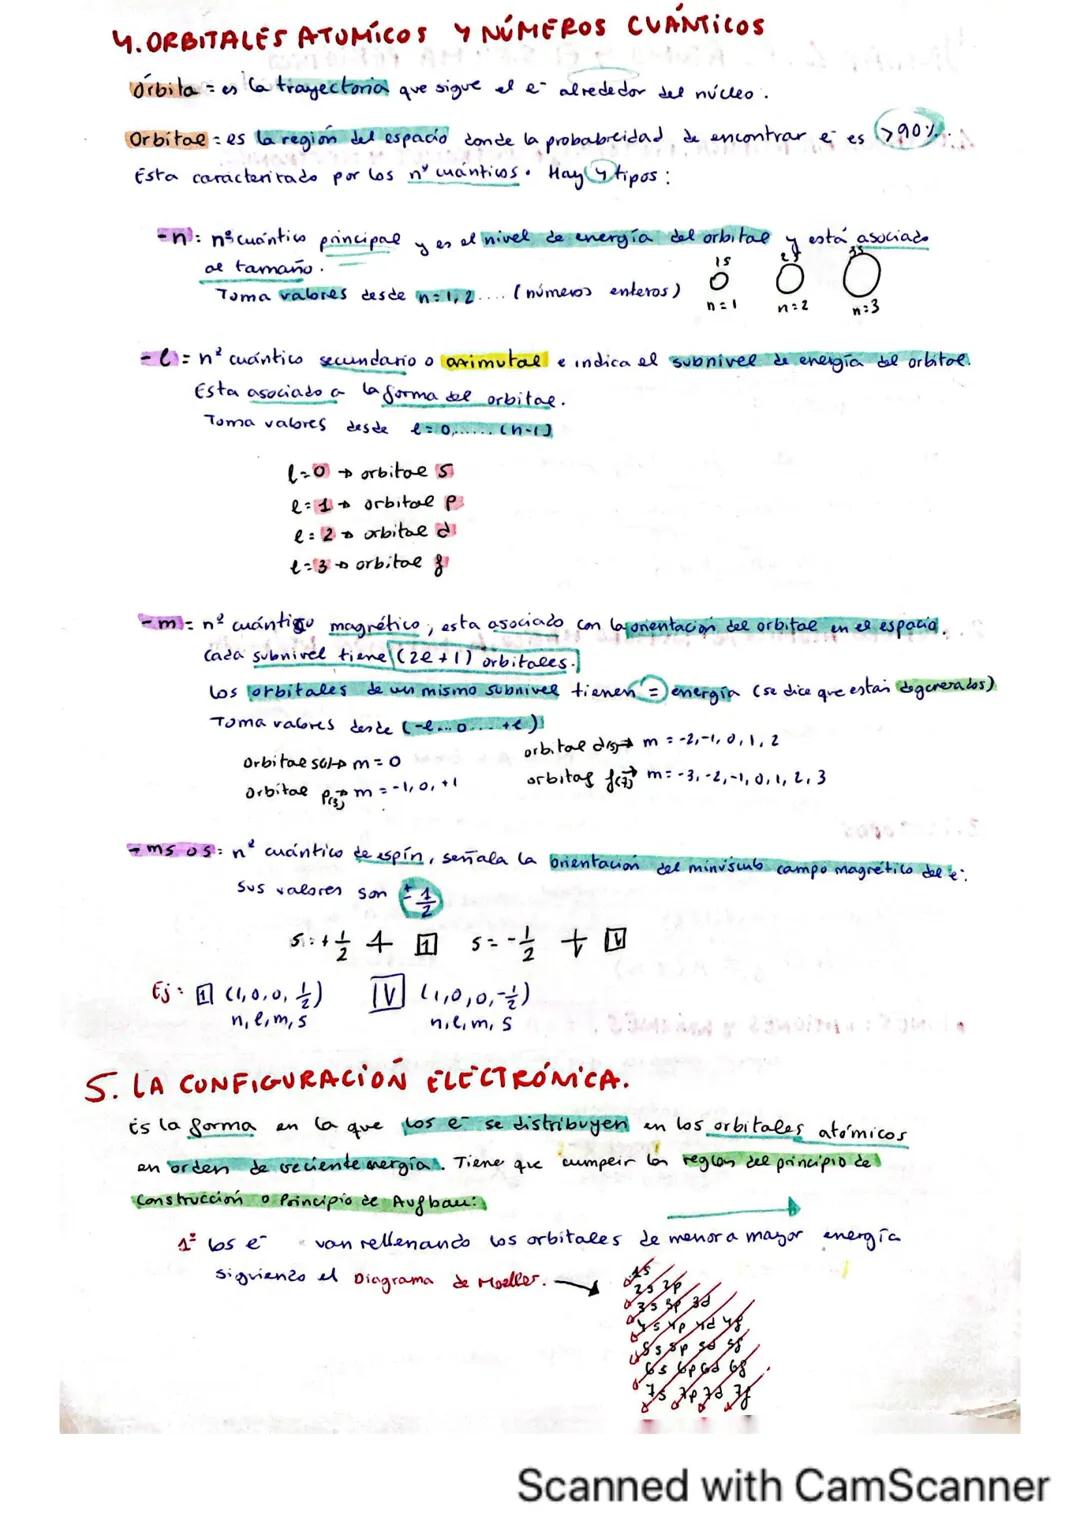 4. ORBITALES ATÓMICOS Y NÚMEROS CUÁNTICOS
Órbita = es la trayectoria que sigue el e⁻ alrededor del núcleo.
Orbital = es la región del espacio donde la probabilidad de encontrar e⁻ es >90%.
Esta caracterizado por los nº cuánticos. Hay 4 tipos:
- n: nº cuántico principal y es el nivel de energía del orbital y está asociado
al tamaño.
1s 2s 3s
Toma valores desde n=1,2.... (números enteros)
n=1 n=2 n=3
- l = nº cuántico secundario o azimutal e indica el subnivel de energía del orbital.
Esta asociado a la forma del orbital.
Toma valores desde l=0,......(n-1)
l=0 → orbital s
l=1 → orbital p
l=2 → orbital d
l=3 → orbital f
- m = nº cuántico magnético, esta asociado con la orientación del orbital en el espacio.
Cada subnivel tiene (2l+1) orbitales.
Los orbitales de un mismo subnivel tienen = energía (se dice que están degenerados)
Toma valores desde (-l...0....+l)
Orbital s(1)→ m=0
orbital d(5)→ m = -2,-1,0,1,2
Orbital p(3)→ m = -1,0,+1
orbital f(7)→ m = -3,-2,-1,0,1,2,3
- ms o s: nº cuántico de espín, señala la orientación del minúsculo campo magnético del e⁻.
Sus valores son ± 1/2
s=+1/2 ↑ 1 s=-1/2 ↓ V
Ej: 1 (1,0,0,1/2) 1V (1,0,0,-1/2)
n,l,m,s n,l,m,s
5. LA CONFIGURACIÓN ELECTRÓNICA.
Es la forma en la que los e⁻ se distribuyen en los orbitales atómicos
en orden de creciente energía. Tiene que cumplir las reglas del principio de
Construcción o Principio de Aufbau:
1º los e⁻ van rellenando los orbitales de menor a mayor energía
siguiendo el Diagrama de Moeller. →
1s
2s 2p
3s 3p 3d
4s 4p 4d 4f
5s 5p 5d 5f
6s 6p 6d 6f
7s 7p 7d 7f
Scanned with CamScanner